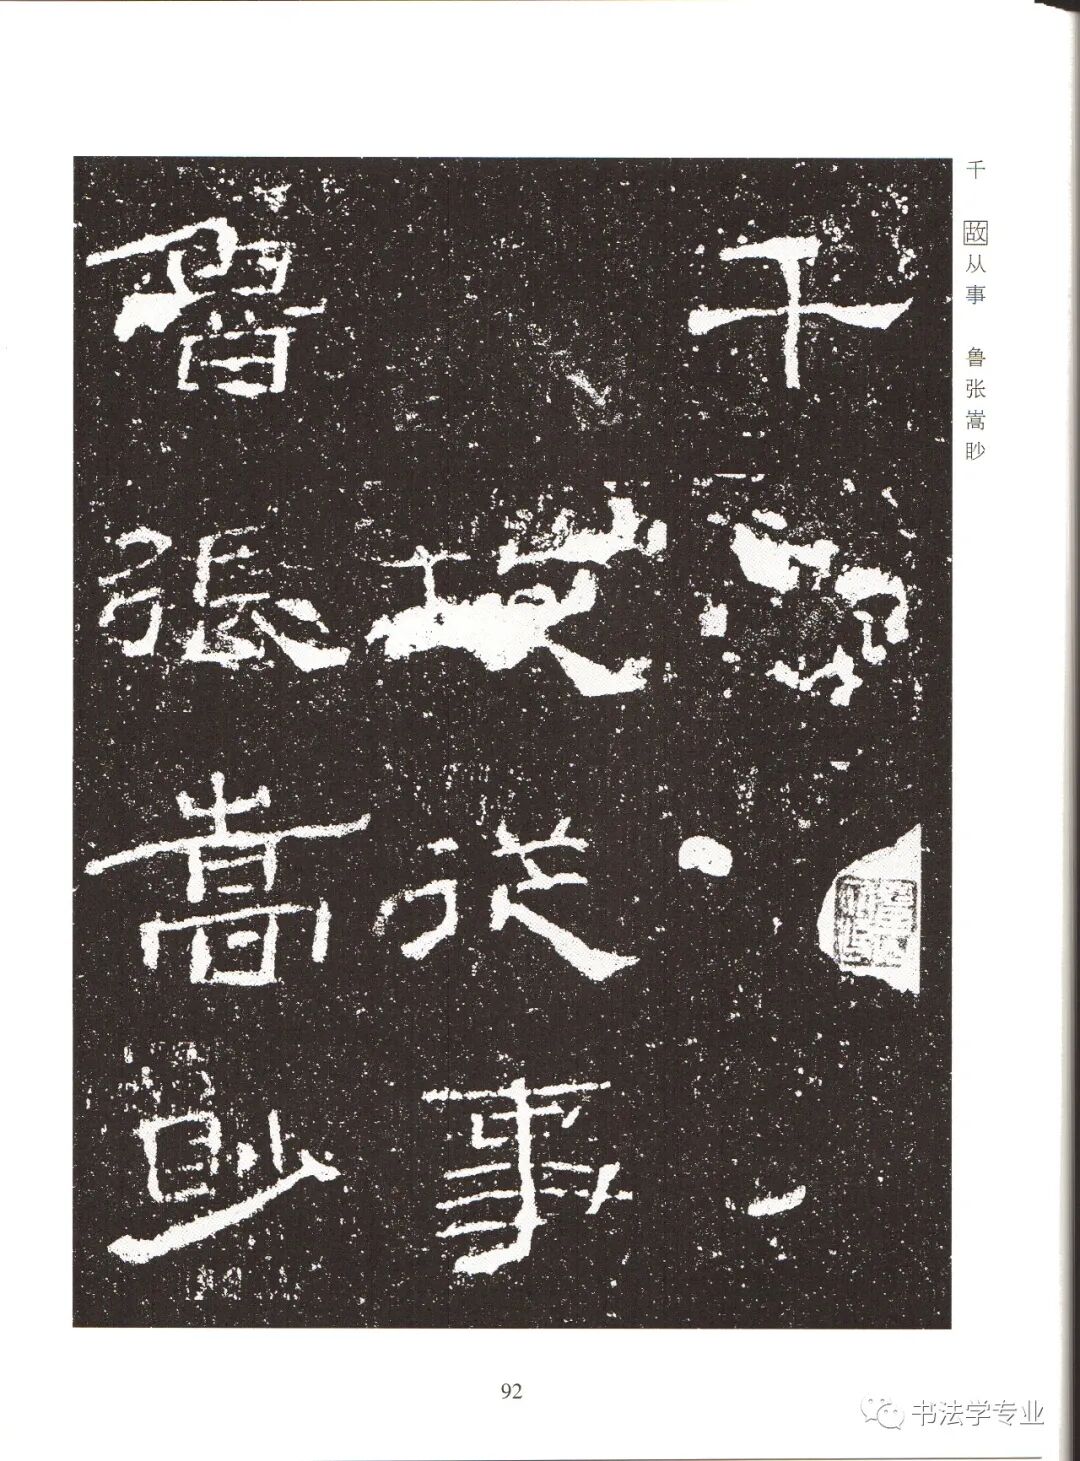 千
故從事
魯張嵩眇
千 故从事 鲁张嵩眇
92
书法学专业